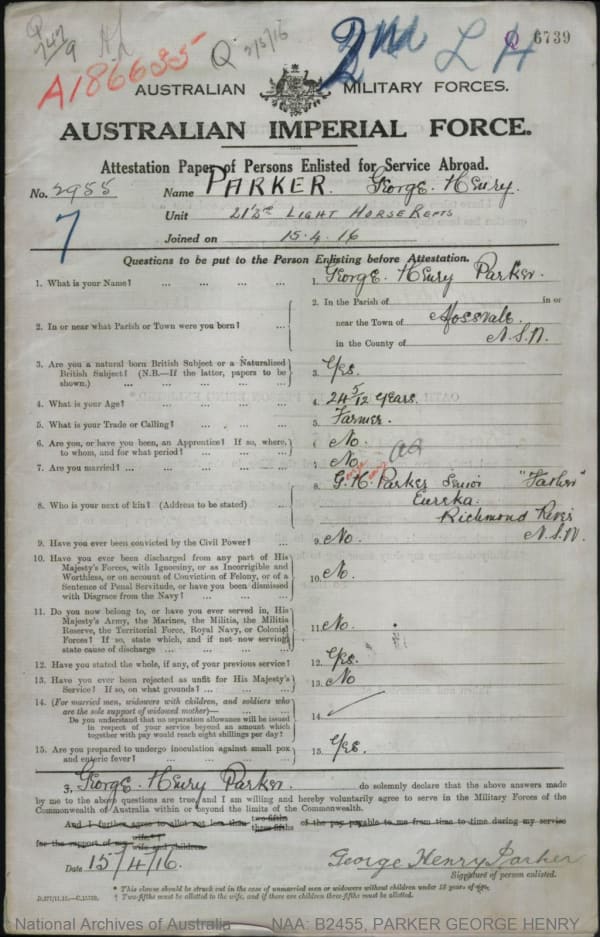 A186635 Q 2/5/16 2nd L H Q 6739
AUSTRALIAN MILITARY FORCES.
AUSTRALIAN IMPERIAL FORCE.
Attestation Paper of Persons Enlisted for Service Abroad.
No. 2955 Name PARKER. George Henry.
7 Unit LIGHT HORSE Refts
Joined on 15.4.16
Questions to be put to the Person Enlisting before Attestation.
1. What is your Name? ... ... ... 1. George Henry Parker.
2. In or near what Parish or Town were you born? ...
2. In the Parish of in or
near the Town of Mossvale.
in the County of N.S.W.
3. Are you a natural born British Subject or a Naturalized
British Subject? (N.B.—If the latter, papers to be
shown.) ... ... ... ...
3. Yes.
4. What is your Age? ... ... ... 4. 24 5/12 years.
5. What is your Trade or Calling? ... ... 5. Farmer.
6. Are you, or have you been, an Apprentice? If so, where,
to whom, and for what period? ... ...
6. No.
7. Are you married? ... ... ... ... 7. No.
8. Who is your next of kin? (Address to be stated) ...
8. G. H. Parker Senior "Father"
Eureka.
Richmond River
N.S.W.
9. Have you ever been convicted by the Civil Power? ... 9. No.
10. Have you ever been discharged from any part of His
Majesty's Forces, with Ignominy, or as Incorrigible and
Worthless, or on account of Conviction of Felony, or of a
Sentence of Penal Servitude, or have you been dismissed
with Disgrace from the Navy? ... ... ...
10. No.
11. Do you now belong to, or have you ever served in, His
Majesty's Army, the Marines, the Militia, the Militia
Reserve, the Territorial Force, Royal Navy, or Colonial
Forces? If so, state which, and if not now serving,
state cause of discharge ... ... ...
11. No.
12. Have you stated the whole, if any, of your previous service? 12. Yes.
13. Have you ever been rejected as unfit for His Majesty's
Service? If so, on what grounds? ... ...
13. No
14. (For married men, widowers with children, and soldiers who
are the sole support of widowed mother)— ... ...
Do you understand that no separation allowance will be issued
in respect of your service beyond an amount which
together with pay would reach eight shillings per day?
14.
15. Are you prepared to undergo inoculation against small pox
and enteric fever? ... ... ... ...
15. Yes.
I, George Henry Parker. do solemnly declare that the above answers made
by me to the above questions are true, and I am willing and hereby voluntarily agree to serve in the Military Forces of the
Commonwealth of Australia within or beyond the limits of the Commonwealth.
And I further agree to allot not less than two-fifths three-fifths of the pay payable to me from time to time during my service
for the support of my wife*† wife and children.
Date 15/4/16.
George Henry Parker
Signature of person enlisted.
* This clause should be struck out in the case of unmarried men or widowers without children under 18 years of age.
† Two-fifths must be allotted to the wife, and if there are children three-fifths must be allotted.
National Archives of Australia NAA: B2455, PARKER GEORGE HENRY